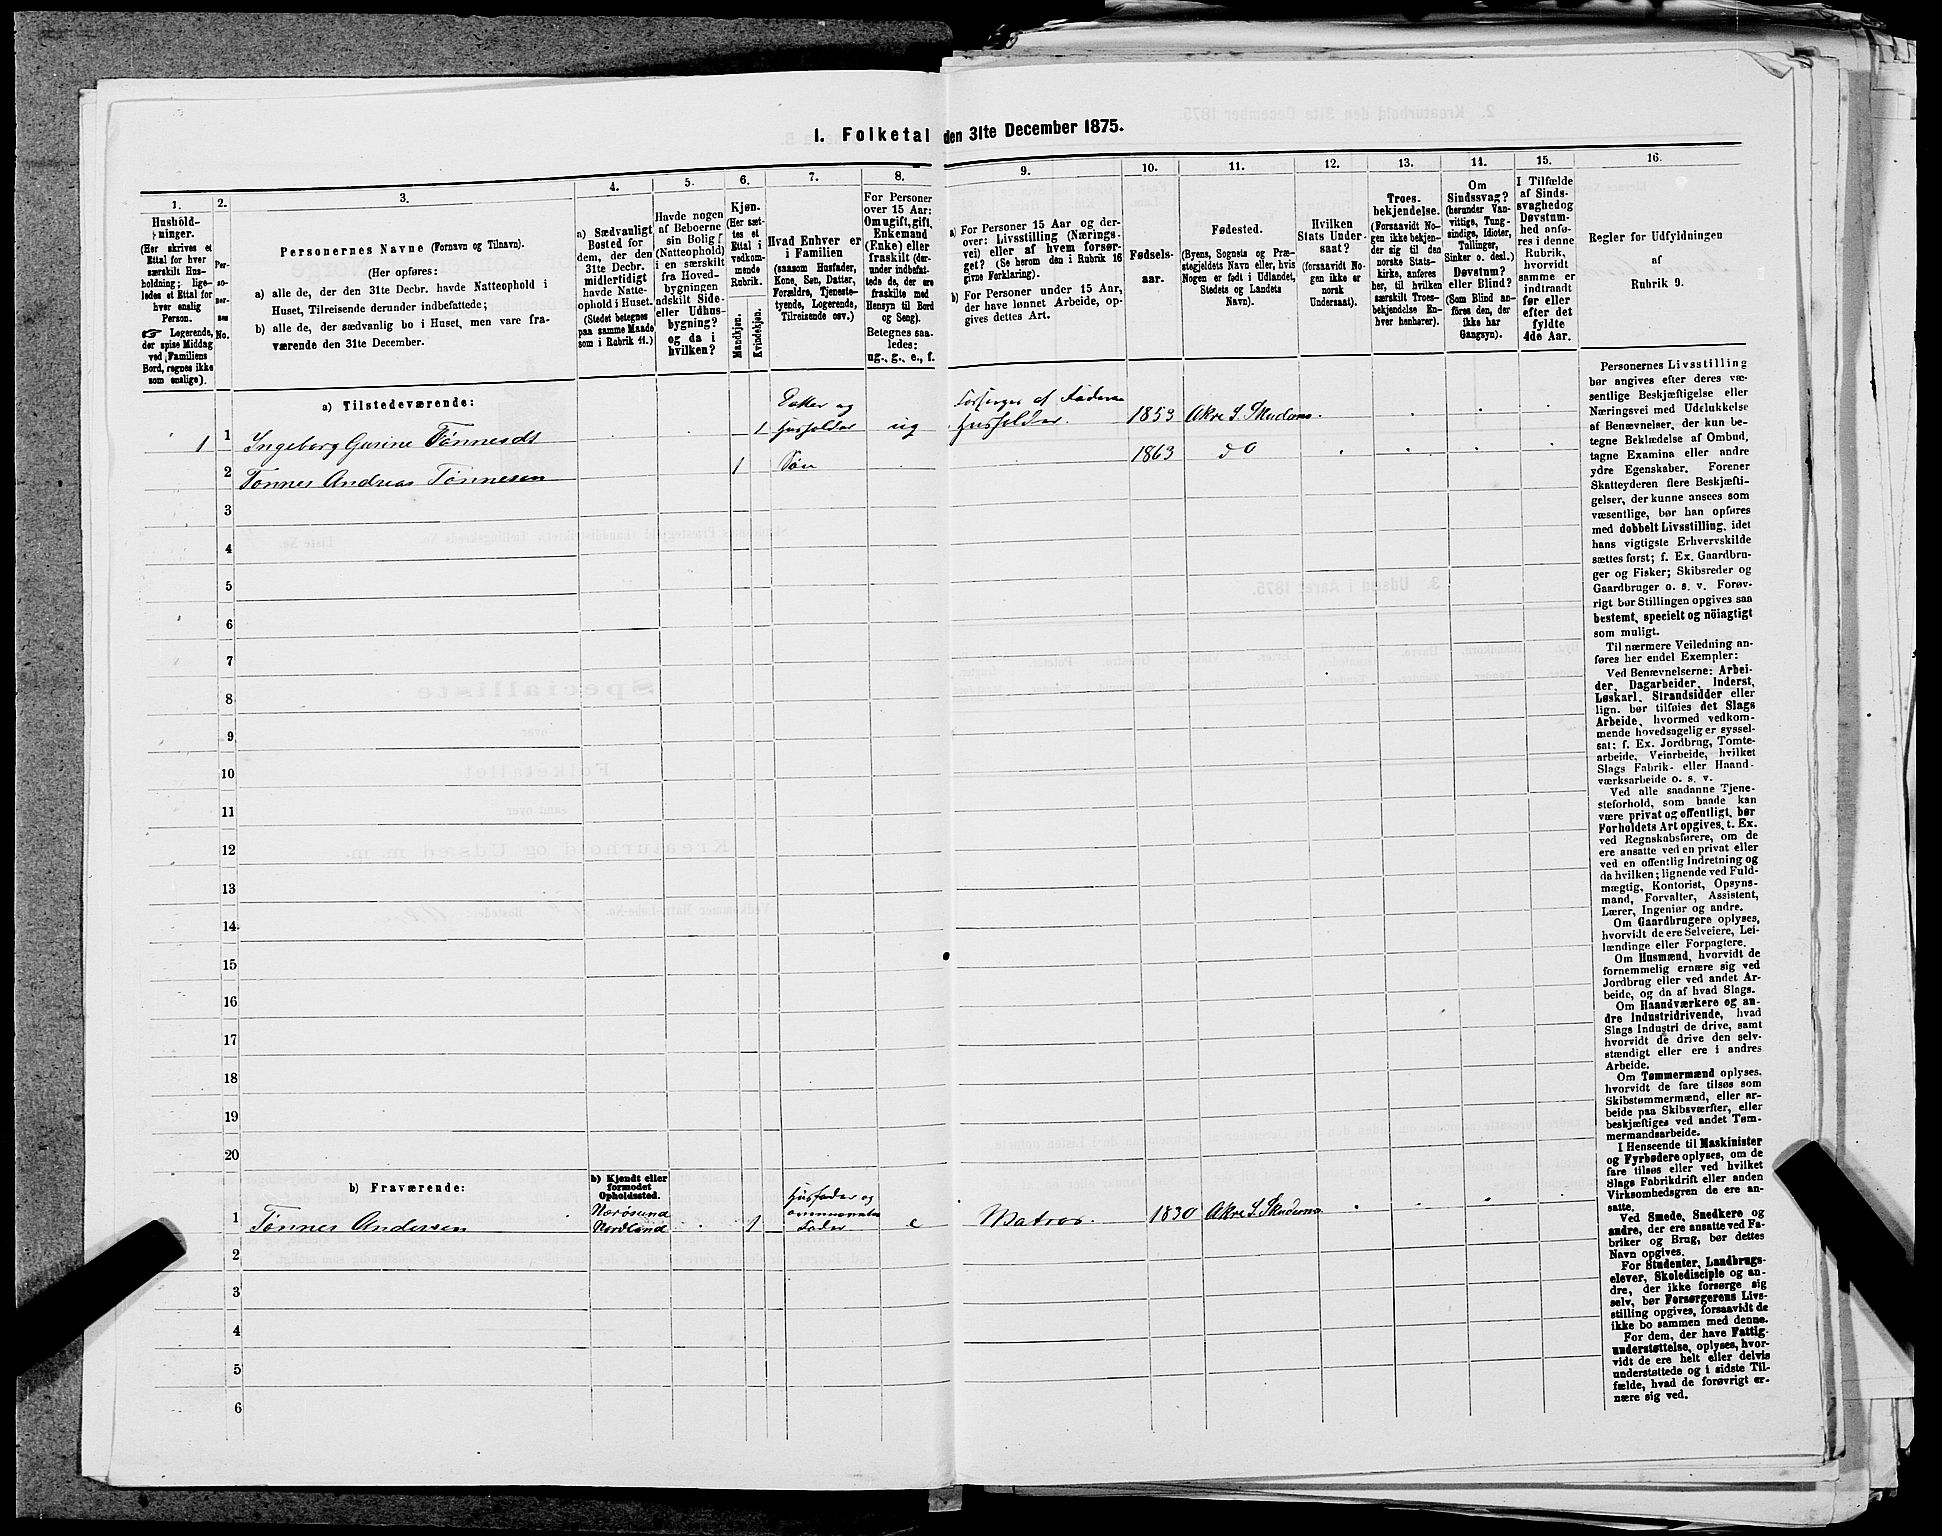 1. Folketal den 31te December 1875.
1.
2.
3.
4.
5.
6.
7.
8.
9.
10.
11.
12.
13.
14.
15.
16.
Hushold-
ninger.
(Her skrives et
Ettal for hver
særskilt Hus-
holdning; lige-
ledes et Ettal for
hver enslig
Person.
☞ Logerende,
der spise Middag
ved Familiens
Bord, regnes ikke
som enslige).
Per-
so-
ner-
nes
No.
Personernes Navne (Fornavn og Tilnavn).
(Her opføres:
a) alle de, der den 31te Decbr. havde Natteophold i
Huset, Tilreisende derunder indbefattede;
b) alle de, der sædvanlig bo i Huset, men vare fra-
værende den 31te December.
a) Sædvanligt
Bosted for
dem, der den
31te Decbr.
midlertidigt
havde Natte-
ophold i Huset.
(Stedet betegnes
paa samme Maade
som i Rubrik 11.)
Havde nogen
af Beboerne
sin Bolig
(Natteophold)
i en særskilt
fra Hoved-
bygningen
adskilt Side-
eller Udhus-
bygning?
og da i
hvilken?
Kjøn.
(Her sæt-
tes et
Ettal i
vedkom-
mende
Rubrik.
Mandkjøn.
Kvindekjøn.
Hvad Enhver er
i Familien
(saasom Husfader,
Kone, Søn, Datter,
Forældre, Tjeneste-
tyende, Logerende,
Tilreisende osv.)
For Personer
over 15 Aar:
Om ugift, gift,
Enkemand
(Enke) eller
fraskilt (der-
under indbefat-
tede de, der ere
fraskilte med
Hensyn til Bord
og Seng).
Betegnes saa-
ledes:
ug., g., e., f.
a) For Personer 15 Aar og der-
over: Livsstilling (Nærings-
vei) eller af hvem forsør-
get? (Se herom den i Rubrik 16
givne Forklaring).
b) For Personer under 15 Aar,
der have lønnet Arbeide, op-
gives dettes Art.
Fødsels-
aar.
Fødested.
(Byens, Sognets og Præ-
stegjeldets Navn eller, hvis
Nogen er født i Udlandet,
Stedets og Landets
Navn).
Hvilken
Stats Under-
saat?
(forsaavidt No-
gen ikke er
norsk
Undersaat).
Troes-
bekjendelse.
(Forsaavidt No-
gen ikke bekjen-
der sig til den
norske Stats-
kirke, anføres
her, til hvilken
særskilt Troes-
bekjendelse En-
hver henhører).
Om
Sindssvag?
(herunder Van-
vittige, Tung-
sindige, Idioter,
Tullinger,
Sinker o. desl.)
Døvstum?
eller Blind?
(Som Blind an-
føres den, der
ikke har
Gangsyn).
I Tilfælde
af Sinds-
svaghed og
Døvstum-
hed anfø-
res i denne
Rubrik,
hvorvidt
samme er
indtraadt
før eller
efter det
fyldte
4de Aar.
Regler for Udfyldningen
af
Rubrik 9.
a) Tilstedeværende:
1 1 Ingeborg Gurine Tønnesdt 1 Datter og Husholder ug Forsørges af Faderen Husholder. 1853 Akre S. Skudenes
2 Tønnes Andreas Tønnesen 1 Søn 1863 do
3
4
5
6
7
8
9
10
11
12
13
14
15
16
17
18
19
20
b) Fraværende:
b) Kjendt eller
formodet
Opholdssted.
1 Tønnes Andersen Nærösund Nordland 1 Husfader og Fader e Matros. 1830 Akre S. Skudenes
2
3
4
5
6
Personernes Livsstilling
bør angives efter deres væ-
sentlige Beskjæftigelse eller
Næringsvei med Udelukkelse
af Benævnelser, der kun be-
tegne Beklædelse af Ombud,
tagne Examina eller andre
ydre Egenskaber. Forener
Skatteyderen flere Beskjæfti-
gelser, der kunne ansees som
væsentlige, bør han opføres
med dobbelt Livsstilling, idet
hans vigtigste Erhvervskilde
sættes først; f. Ex. Gaardbru-
ger og Fisker; Skibsreder og
Gaardbruger o. s. v. Forøv-
rigt bør Stillingen opgives saa
bestemt, specielt og nöiagtigt
som muligt.
Til nærmere Veiledning an-
føres her endel Exempler:
Ved Benævnelserne: Arbei-
der, Dagarbeider, Inderst,
Løskarl, Strandsidder eller
lign. bør tilføies det Slags
Arbeide, hvormed vedkom-
mende hovedsagelig er syssel-
sat: f. Ex. Jordbrug, Tomte-
arbeide, Veiarbeide, hvilket
Slags Fabrik- eller Haand-
værksarbeide o. s. v.
Ved alle saadanne Tjene-
steforhold, som baade kan
være privat og offentligt, bør
Forholdets Art opgives, t. Ex.
ved Regnskabsførere, om de
ere ansatte ved en privat eller
ved en offentlig Indretning og
da hvilken; lignende ved Fuld-
mægtig, Kontorist, Opsyns-
mand, Forvalter, Assistent,
Lærer, Ingeniør og andre.
Om Gaardbrugere oplyses,
hvorvidt de ere Selveiere, Lei-
lændinge eller Forpagtere.
Om Husmænd, hvorvidt de
fornemmelig ernære sig ved
Jordbrug eller ved andet Ar-
beide, og da af hvad Slags.
Om Haandværkere og an-
dre Industridrivende, hvad
Slags Industri de drive, samt
hvorvidt de drive den selv-
stændigt eller ere i andres
Arbeide.
Om Tømmermænd oplyses,
hvorvidt de fare tilsøs som
Skibstømmermænd, eller ar-
beide paa Skibsværfter, eller
beskjæftiges ved andet Tøm-
mermandsarbeide.
I Henseende til Maskinister
og Fyrbødere oplyses, om de
fare tilsøs eller ved hvilket
Slags Fabrikdrift eller anden
Virksomhedsgren de ere an-
satte.
Ved Smede, Snedkere og
andre, der ere ansatte ved Fa-
briker og Brug, bør dettes
Navn opgives.
For Studenter, Landbrugs-
elever, Skoledisciple og an-
dre, der ikke forsørge sig
selv, bør Forsørgerens Livs-
stilling opgives, forsaavidt de
ikke bo sammen med denne.
For dem, der have Fattig-
understøttelse, oplyses, hvor-
vidt de ere helt eller delvis
understøttede og i sidste Til-
fælde, hvad de forøvrigt er-
nære sig ved.